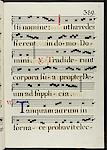 369.
sti nomine:
fierent in domo Do-
mini. Tradide-runt
corpora sua propter De-
um ad suppli-cia.
Tanquam aurum in
forna-ce probavit elec-